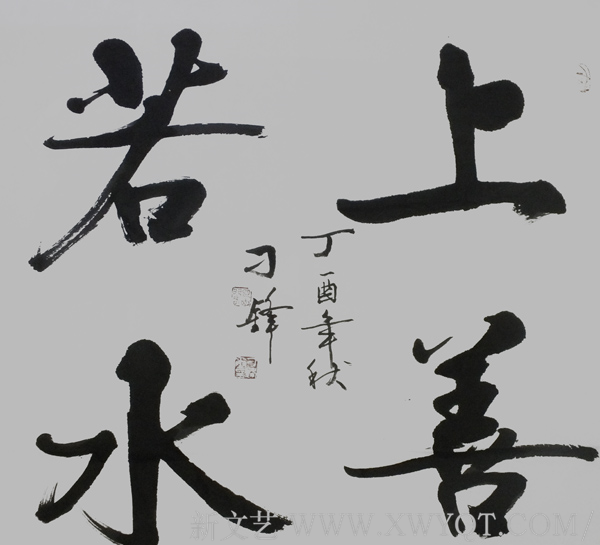 上善
若水
丁酉年秋
刁锋
新文艺 WWW.XWYQT.COM/